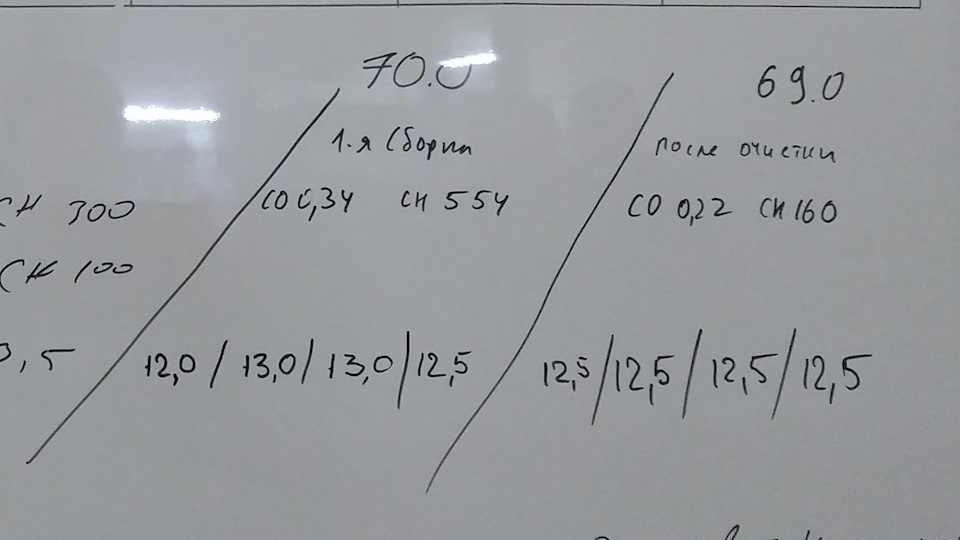 70.0
69.0
1.я Сборки
после очистки
CH 300
CO 0,34 CH 554
CO 0,22 CH 160
CH 100
,5
12,0 / 13,0 / 13,0 / 12,5
12,5 / 12,5 / 12,5 / 12,5